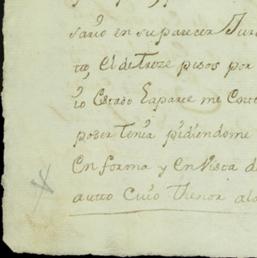 sario en su parecer Jur
to, el de Treze pesos por
io Estado Eaparte me Conte
poder tenia pidiendome
en forma y en Vista d
autto Cuio Thenor alo